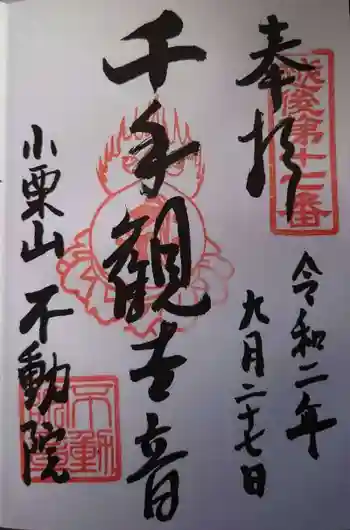 奉拝
越後第十二番
令和二年
九月二十七日
千手観世音
小栗山不動院
不動院